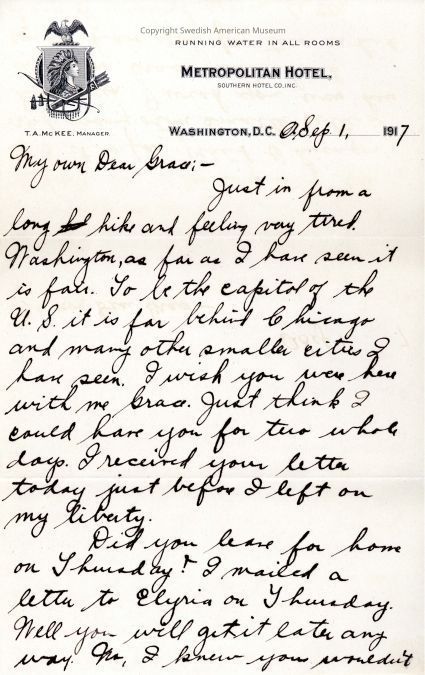 Copyright Swedish American Museum
RUNNING WATER IN ALL ROOMS
METROPOLITAN HOTEL,
SOUTHERN HOTEL CO., INC.
T. A. MCKEE, MANAGER.
WASHINGTON, D.C. Sep. 1, 1917
My own Dear Grace; —
Just in from a
long hike and feeling very tired.
Washington, as far as I have seen it
is fair. To be the capitol of the
U. S. it is far behind Chicago
and many other smaller cities I
have seen. I wish you were here
with me Grace. Just think I
could have you for two whole
days. I received your letter
today just before I left on
my liberty.
Did you leave for home
on Thursday? I mailed a
letter to Elyria on Thursday.
Well you will get it later any
way. No, I knew you wouldn't